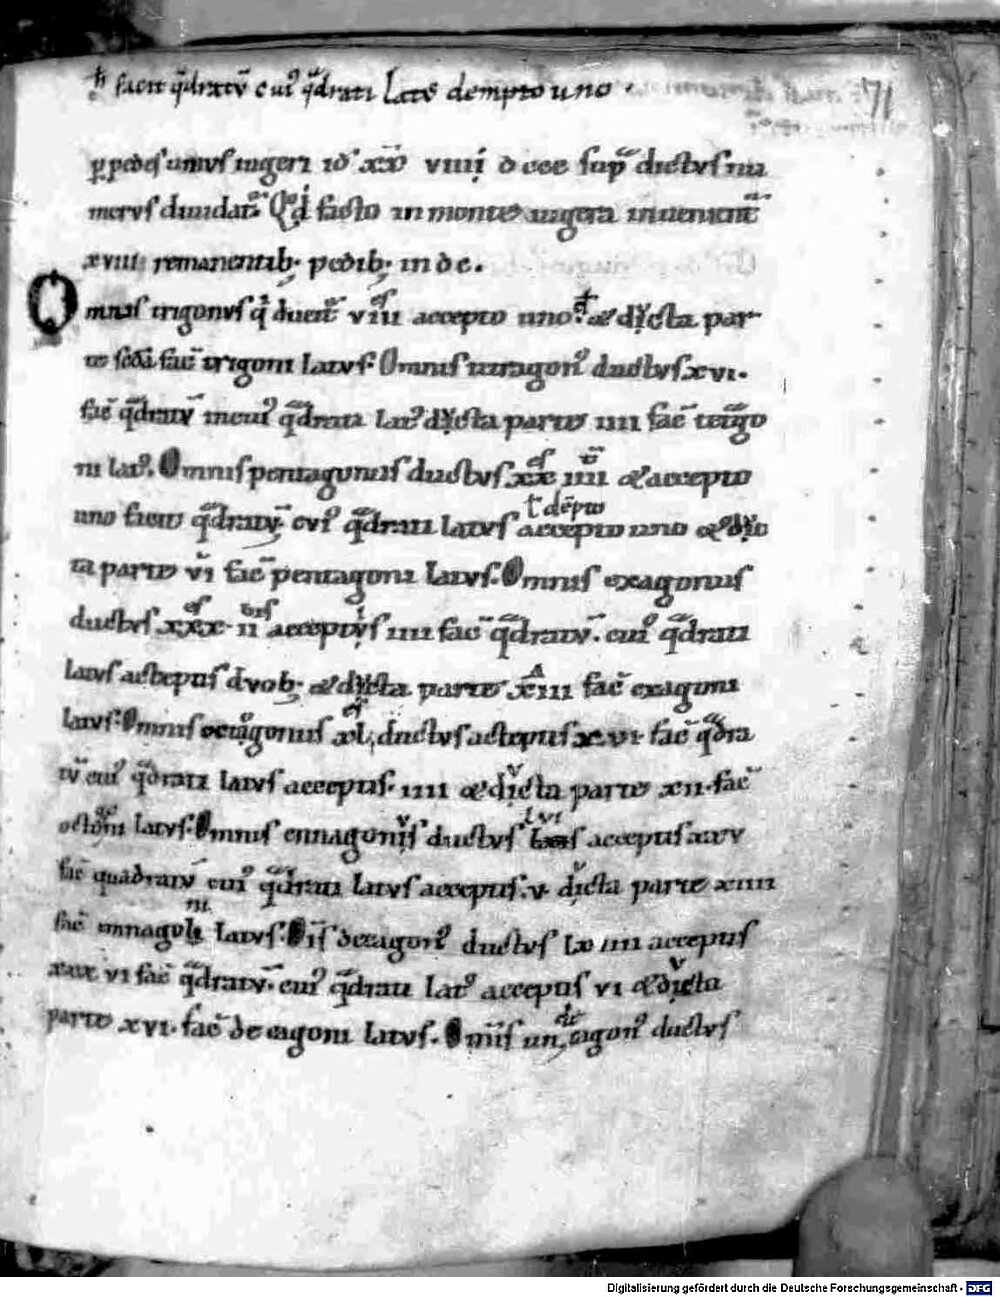 facit q̄dratū cui᷒ q̄drati Lat᷒ dempto uno · 71
p̱ pedes unius iugeri id ē xx viiii d ccc sup̄ dictus nu
merus diuidat᷑. Qd facto in monte iugera inuenient᷑
xviiii remanentib; pedib; inde.
Omnis trigonus q̄ duc̄it viii accepto uno & dicta par
te scđa fac̄ trigoni latus. Omnis tetragon᷒ ductus xvi.
fac̄ q̄dratū cui᷒ q̄drati lat᷒ dicta parte iiii fac̄ tetrago
ni lat᷒. Omnis pentagonus ductus xx iiii & accepto
ł dēpto
uno facit q̄dratū. cui᷒ q̄drati latus accepto uno & dic
ta parte vi fac̄ pentagoni latus. Omnis exagonus
ductus xxx ii acceptis iiii fac̄ q̄dratū. cui᷒ q̄drati
latus acceptis duob; & dicta parte fac̄ exagoni
latus. Omnis octagonus xl ductus acceptis xvi fac̄ q̄dra
tū cui᷒ q̄drati latus acceptis. iiii & dicta parte xii. fac̄
lvi
octogoni latus. Omnis ennagonus ductus acceptis xxv
fac̄ quadratū cui᷒ q̄drati latus acceptis. v dicta parte xiiii
ni
fac̄ ennago latus. Oīs decagon᷒ ductus lx iiii acceptis
xxx vi fac̄ q̄dratū. cui᷒ q̄drati lat᷒ acceptis vi & dicta
de
parte xvi. fac̄ decagoni latus. Omīs un cagon᷒ ductus
Digitalisierung gefördert durch die Deutsche Forschungsgemeinschaft - DFG